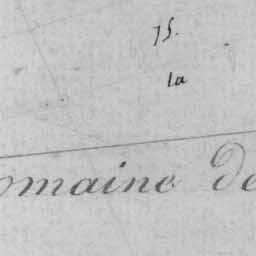 75.
la
omaine de